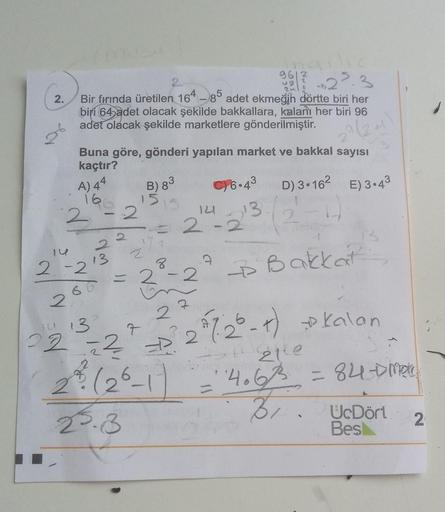 96 2
→ 2⁵.3
2. Bir fırında üretilen 16⁴ – 8⁵ adet ekmeğin dörtte biri her
biri 64 adet olacak şekilde bakkallara, kalanı her biri 96
adet olacak şekilde marketlere gönderilmiştir.
2⁶
Buna göre, gönderi yapılan market ve bakkal sayısı
kaçtır?
A) 4⁴ B) 8³ C) 6•4³ D) 3•16² E) 3•4³
2¹⁶ - 2¹⁵ = 2¹⁴ - 2¹³
2²
2¹⁴ - 2¹³ = 2⁸ - 2⁷ → Bakkal
2⁶
2⁷
2¹³ - 2⁷ → 2⁷(2⁶-1) → kalan
2⁷.(2⁶-1) = 4.63 = 84 →
2⁵.3 3
ÜçDört
Beş
2